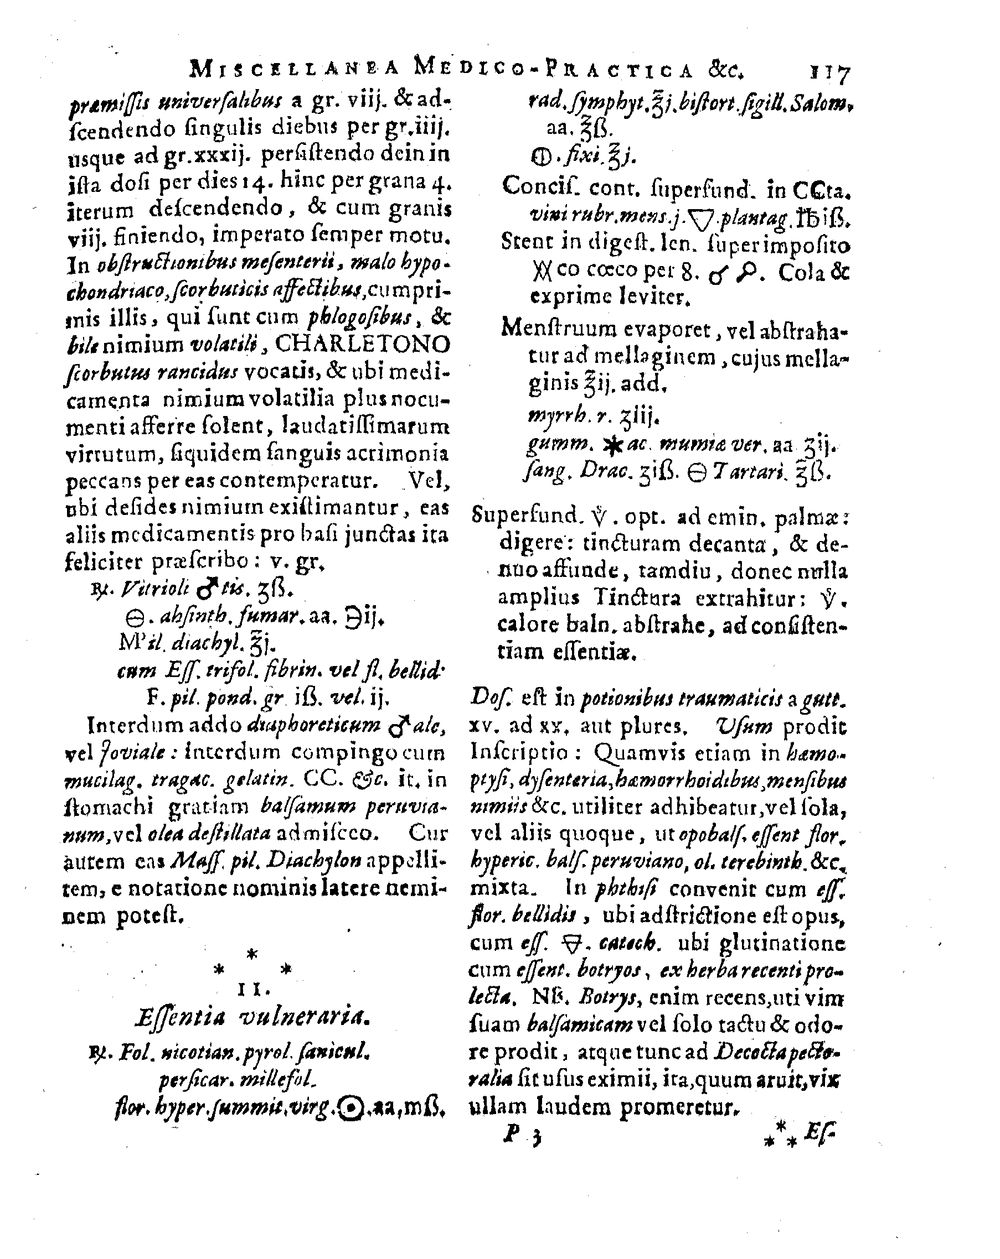 MISCELLANEA MEDICO-PRACTICA &c. 117
præmiſſis univerſalibus a gr. viij. & ad-
ſcendendo ſingulis diebus per gr.iiij.
usque ad gr.xxxij. perſiſtendo dein in
iſta doſi per dies 14. hinc per grana 4.
iterum deſcendendo, & cum granis
viij. finiendo, imperato ſemper motu.
In obſtructionibus meſenterii, malo hypo-
chondriaco, ſcorbuticis affectibus, cumpri-
mis illis, qui ſunt cum phlogoſibus, &
bile nimium volatili, CHARLETONO
ſcorbutus rancidus vocatis, & ubi medi-
camenta nimium volatilia plus nocu-
menti afferre ſolent, laudatiſſimarum
virtutum, ſiquidem ſanguis acrimonia
peccans per eas contemperatur. Vel,
ubi deſides nimium exiſtimantur, eas
aliis medicamentis pro baſi junctas ita
feliciter præſcribo: v. gr.
℞. Vitrioli ♂tis. ʒß.
⊖. abſinth. fumar. aa. ℈ij.
Mſil. diachyl. ℥j.
cum Eſſ. trifol. fibrin. vel fl. bellid:
F. pil. pond. gr iß. vel. ij.
Interdum addo diaphoreticum ♂ale,
vel Joviale: interdum compingo cum
mucilag. tragac. gelatin. CC. &c. it. in
ſtomachi gratiam balſamum peruvia-
num, vel olea deſtillata admiſceo. Cur
autem eas Maſſ. pil. Diachylon appelli-
tem, e notatione nominis latere nemi-
nem poteſt.
*
* *
II.
Eſſentia vulneraria.
℞. Fol. nicotian. pyrol. ſanicul.
perſicar. millefol.
flor. hyper. ſummit. virg. ☉. aa, mß.
rad. ſymphyt. ℥j. biſtort. ſigill. Salom,
aa. ℥ß.
🜕. fixi ℥j.
Conciſ. cont. ſuperfund. in CCta.
vini rubr. mens. j. ▽. plantag. ℔iß.
Stent in digeſt. len. ſuperimpoſito
co cœco per 8. Cola &
exprime leviter.
Menſtruum evaporet, vel abſtraha-
tur ad mellaginem, cujus mella-
ginis ℥ij. add.
myrrh. r. ʒiij.
gumm. ✱ac. mumiæ ver. aa ʒij.
ſang. Drac. ʒiß. ⊖ Tartari. ℥ß.
Superfund. . opt. ad emin. palmæ:
digere: tincturam decanta, & de-
nuo affunde, tamdiu, donec nulla
amplius Tinctura extrahitur: .
calore baln. abſtrahe, ad conſiſten-
tiam eſſentiæ.
Doſ. eſt in potionibus traumaticis a gutt.
xv. ad xx. aut plures. Uſum prodit
Inſcriptio: Quamvis etiam in hæmo-
ptyſi, dyſenteria, hæmorrhoidibus, menſibus
nimiis &c. utiliter adhibeatur, vel ſola,
vel aliis quoque, ut opobalſ. eſſent flor.
hyperic. balſ. peruviano, ol. terebinth. &c.
mixta. In phthiſi convenit cum eſſ.
flor. bellidis, ubi adſtrictione eſt opus,
cum eſſ. 🜃. catech. ubi glutinatione
cum eſſent. botryos, ex herba recenti pro-
lecta. NB. Botrys, enim recens, uti vim
ſuam balſamicam vel ſolo tactu & odo-
re prodit, atque tunc ad Decocta pecto-
ralia ſit uſus eximii, ita, quum aruit, vix
ullam laudem promeretur.
P 3
*** Eſ-